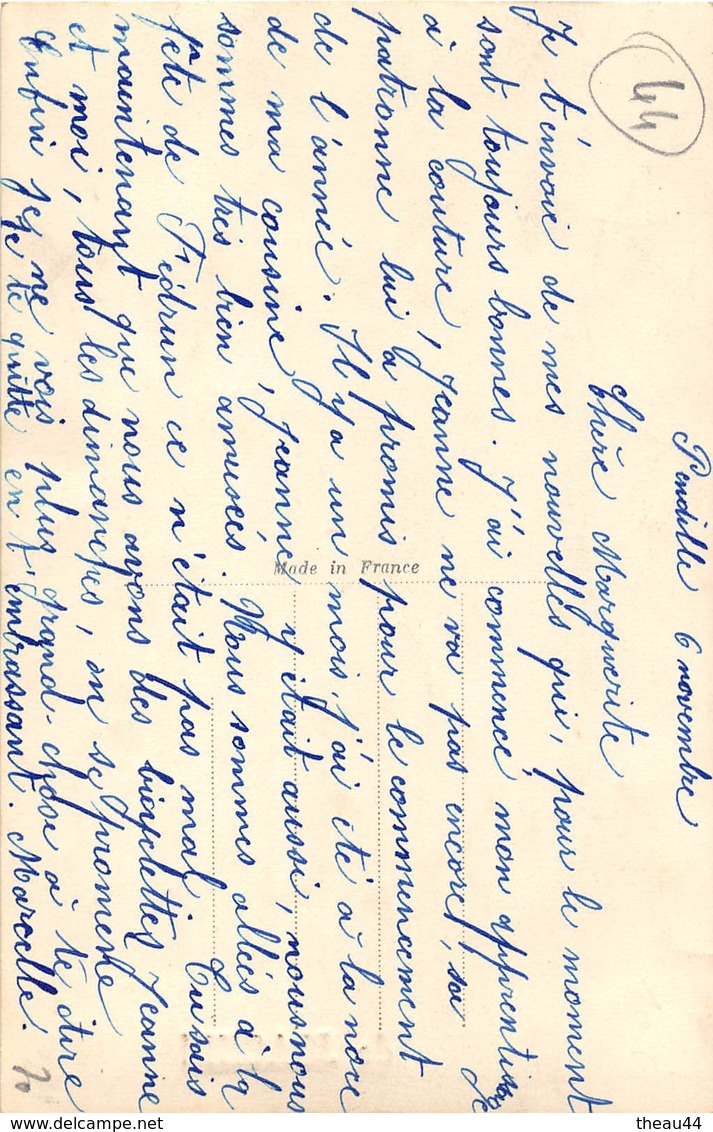 Pendille 6 novembre
Chère Marguerite
Je t'envoie de mes nouvelles qui, pour le moment
sont toujours bonnes. J'ai commencé mon apprentissage
à la couture, Jeanne ne va pas encore, sa
patronne lui a promis pour le commencement
de l'année. Il y a un mois, j'ai été à la noce
de ma cousine, Jeanne y était aussi, nous nous
sommes très bien amusées. Nous sommes allées à la
fête de Fédrun ce n'était pas mal Tu sais
maintenant que nous avons des bicyclettes Jeanne
et moi, tous les dimanches, on se promène
Enfin je ne vois plus grand-chose à te dire
Je te quitte en t'embrassant. Marcelle.
Made in France
44
20
theau44